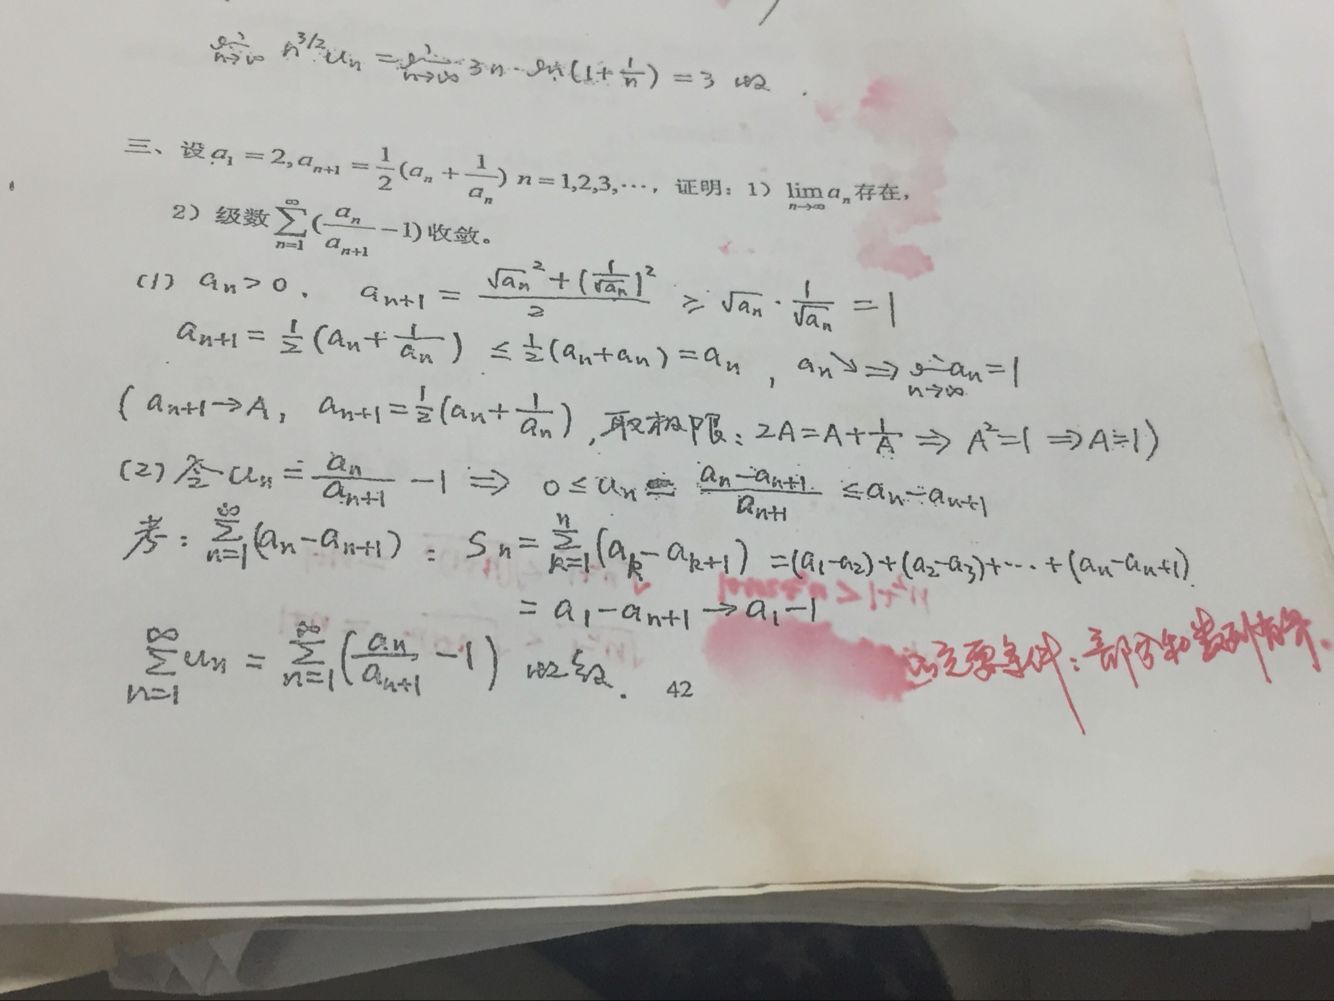 lim n→∞ n^{3/2} u_n = lim n→∞ 3n·ln(1+1/n) = 3 收.
三、设 a_1 = 2, a_{n+1} = 1/2 (a_n + 1/a_n) n = 1,2,3,⋯, 证明：1）lim n→∞ a_n 存在，
2）级数 ∑_{n=1}^{∞} (a_n/a_{n+1} − 1) 收敛。
(1) a_n > 0 . a_{n+1} = (√a_n² + (1/√a_n)²)/2 ≥ √a_n · 1/√a_n = 1
a_{n+1} = 1/2 (a_n + 1/a_n) ≤ 1/2 (a_n + a_n) = a_n , a_n ↘ ⇒ lim n→∞ a_n = 1
( a_{n+1} → A, a_{n+1} = 1/2 (a_n + 1/a_n) , 取极限: 2A = A + 1/A ⇒ A² = 1 ⇒ A = 1 )
(2) 令 u_n = a_n/a_{n+1} − 1 ⇒ 0 ≤ u_n = (a_n − a_{n+1})/a_{n+1} ≤ a_n − a_{n+1}
考: ∑_{n=1}^{∞} (a_n − a_{n+1}) : S_n = ∑_{k=1}^{n} (a_k − a_{k+1}) = (a_1 − a_2) + (a_2 − a_3) + ⋯ + (a_n − a_{n+1})
= a_1 − a_{n+1} → a_1 − 1
∑_{n=1}^{∞} u_n = ∑_{n=1}^{∞} (a_n/a_{n+1} − 1) 收敛.
42
充要条件: 部分和数列有界.